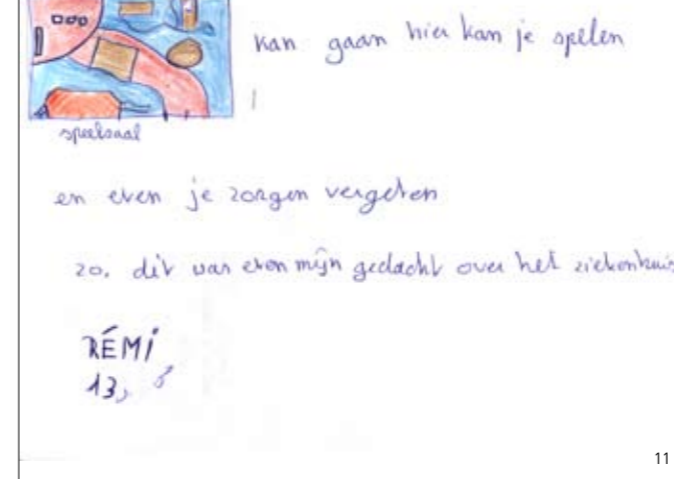 kan gaan hier kan je spelen
speelzaal
en even je zorgen vergeten
zo, dit was even mijn gedacht over het ziekenhuis
RÉMI
13,
11